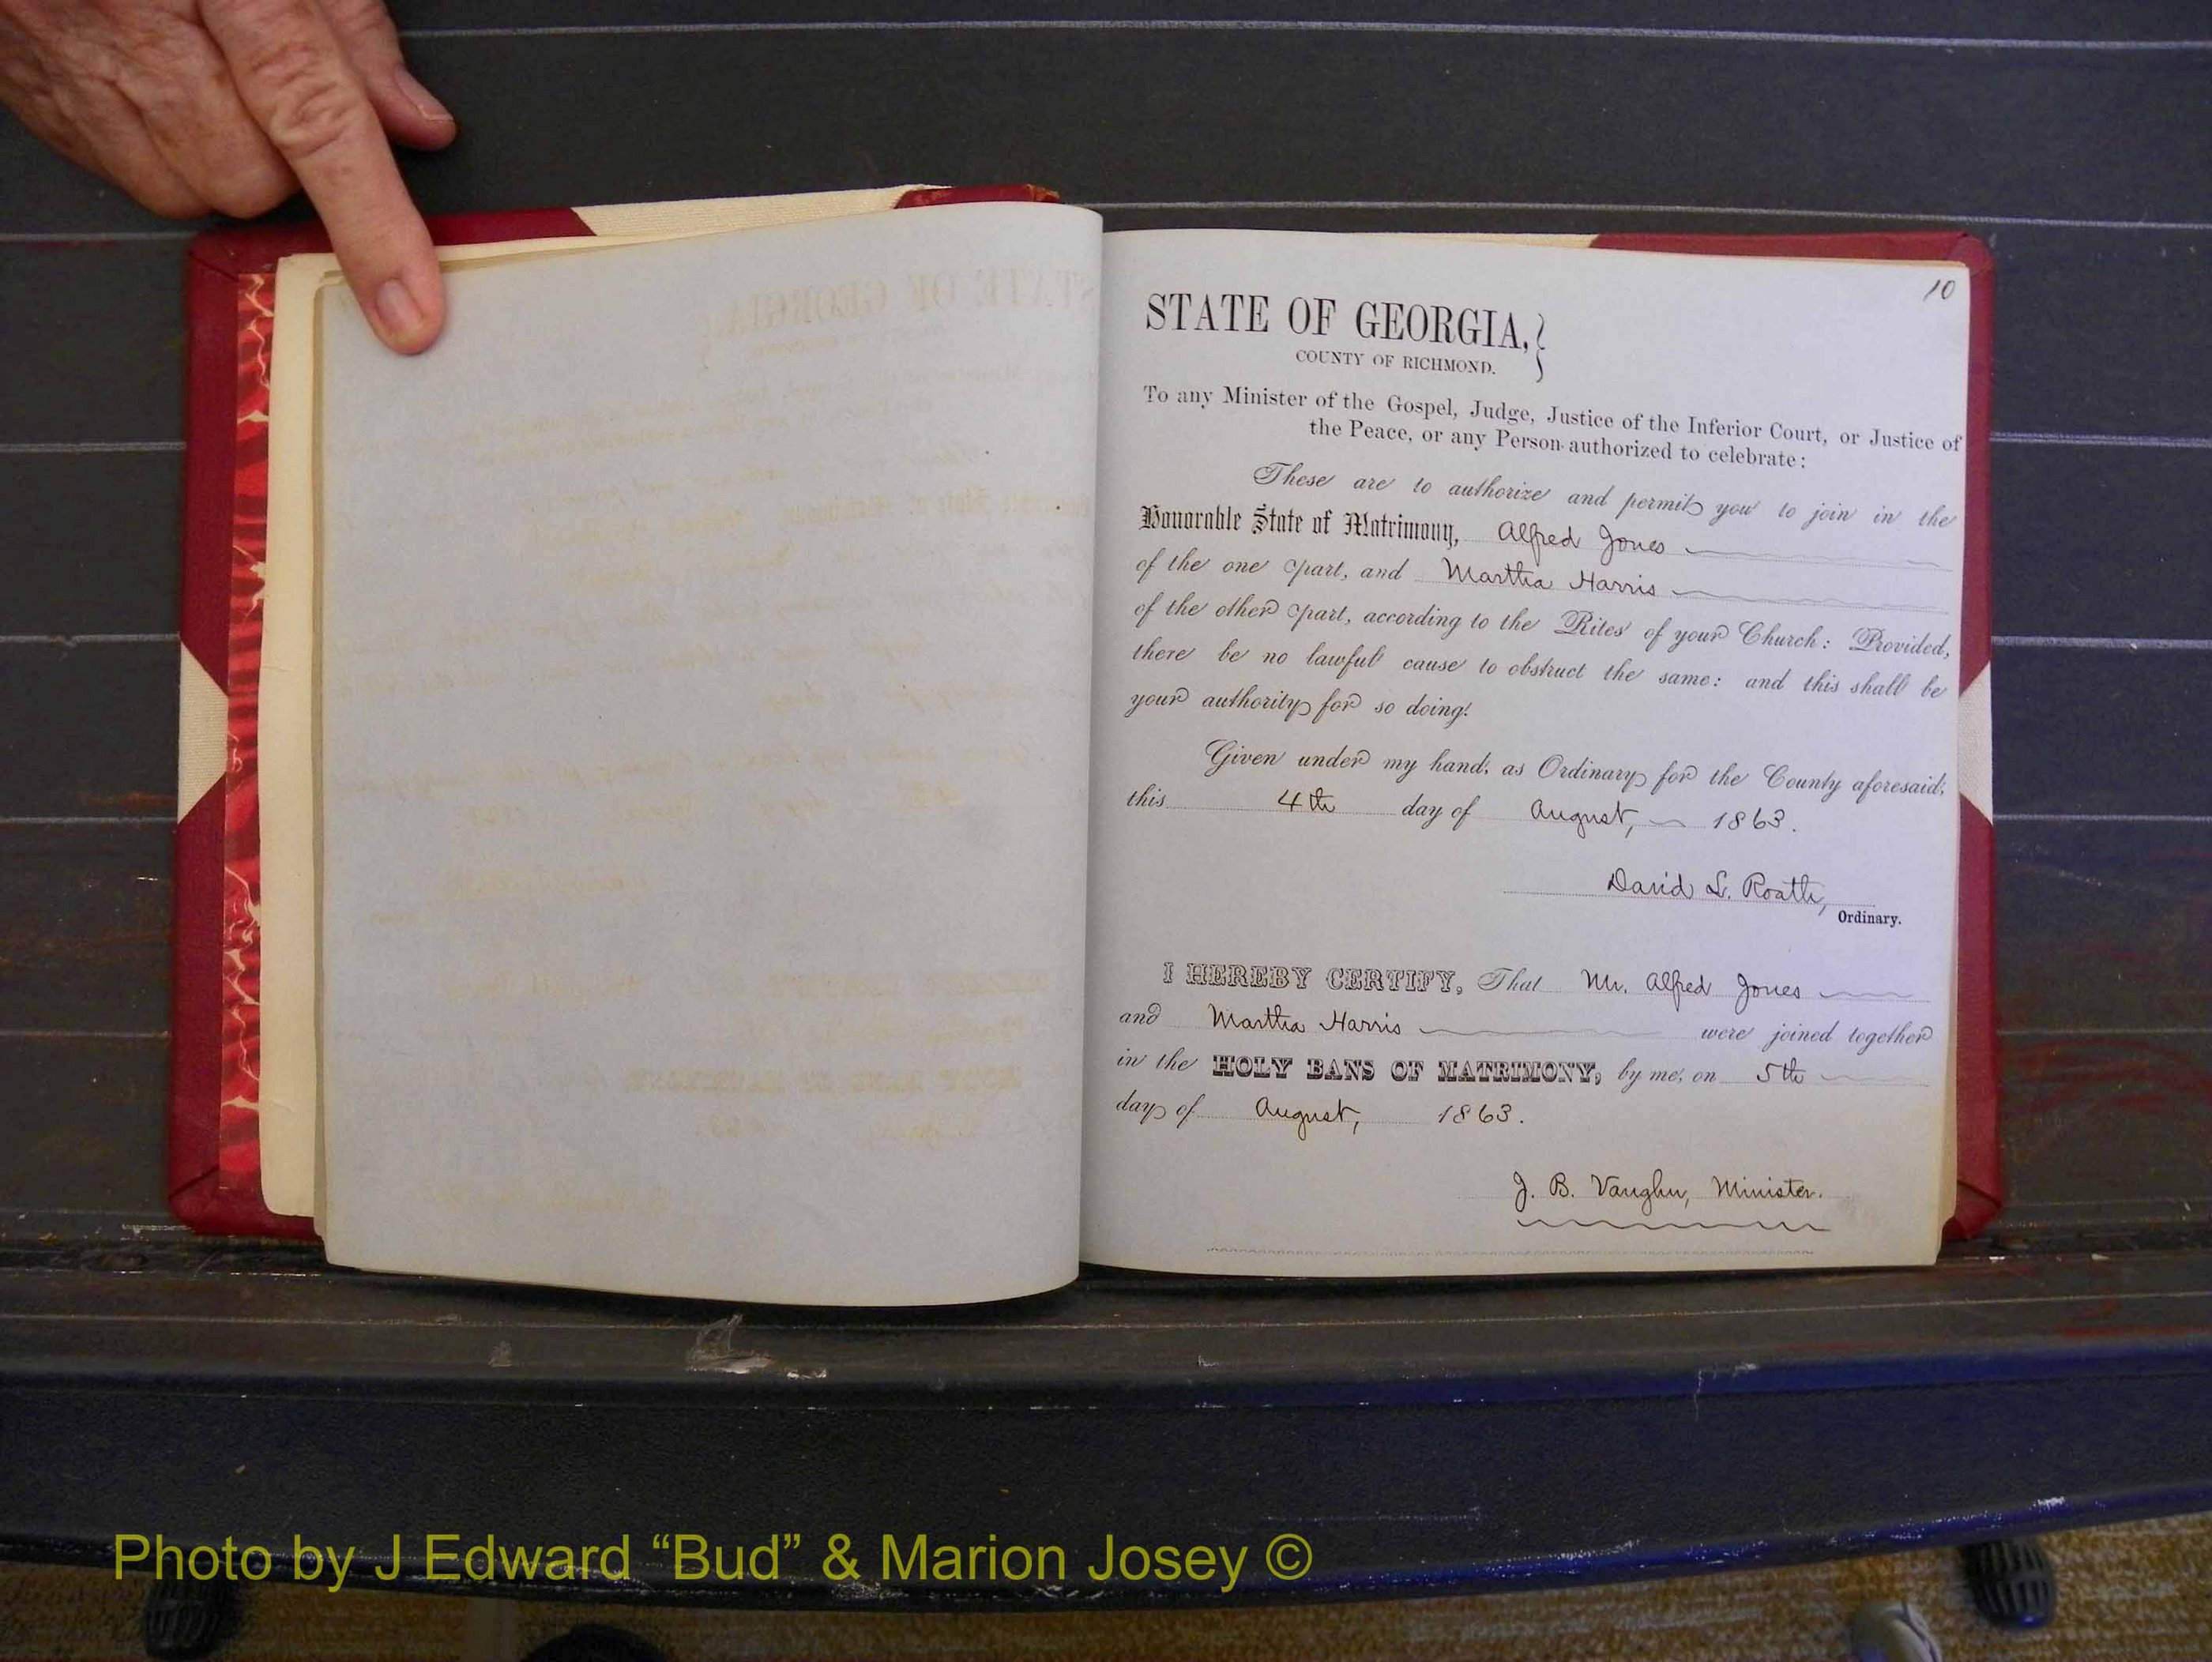 10
STATE OF GEORGIA,
COUNTY OF RICHMOND.
To any Minister of the Gospel, Judge, Justice of the Inferior Court, or Justice of
the Peace, or any Person authorized to celebrate:
These are to authorize and permit you to join in the
Honorable State of Matrimony, Alfred Jones
of the one part, and Martha Harris
of the other part, according to the Rites of your Church: Provided,
there be no lawful cause to obstruct the same: and this shall be
your authority for so doing.
Given under my hand, as Ordinary for the County aforesaid,
this 4th day of August, 1863.
David L. Roath,
Ordinary.
I HEREBY CERTIFY, That Mr. Alfred Jones
and Martha Harris were joined together
in the HOLY BANS OF MATRIMONY, by me, on 5th
day of August, 1863.
J. B. Vaughn, Minister.
Photo by J Edward “Bud” & Marion Josey ©